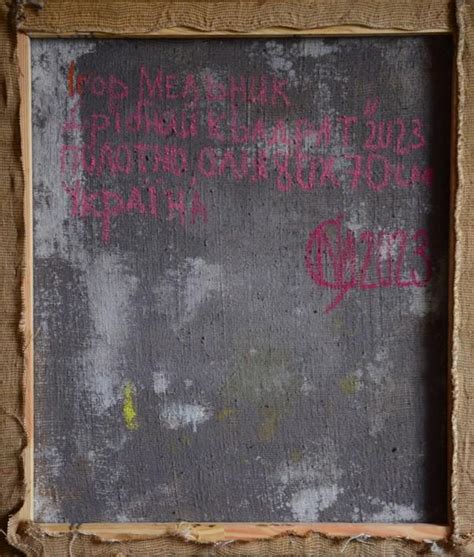 Ігор МЕЛЬНИК
КВАДРАТ" 2023
ПОЛОТНО ОЛІЯ 80Х70см
УКРАЇНА
2023